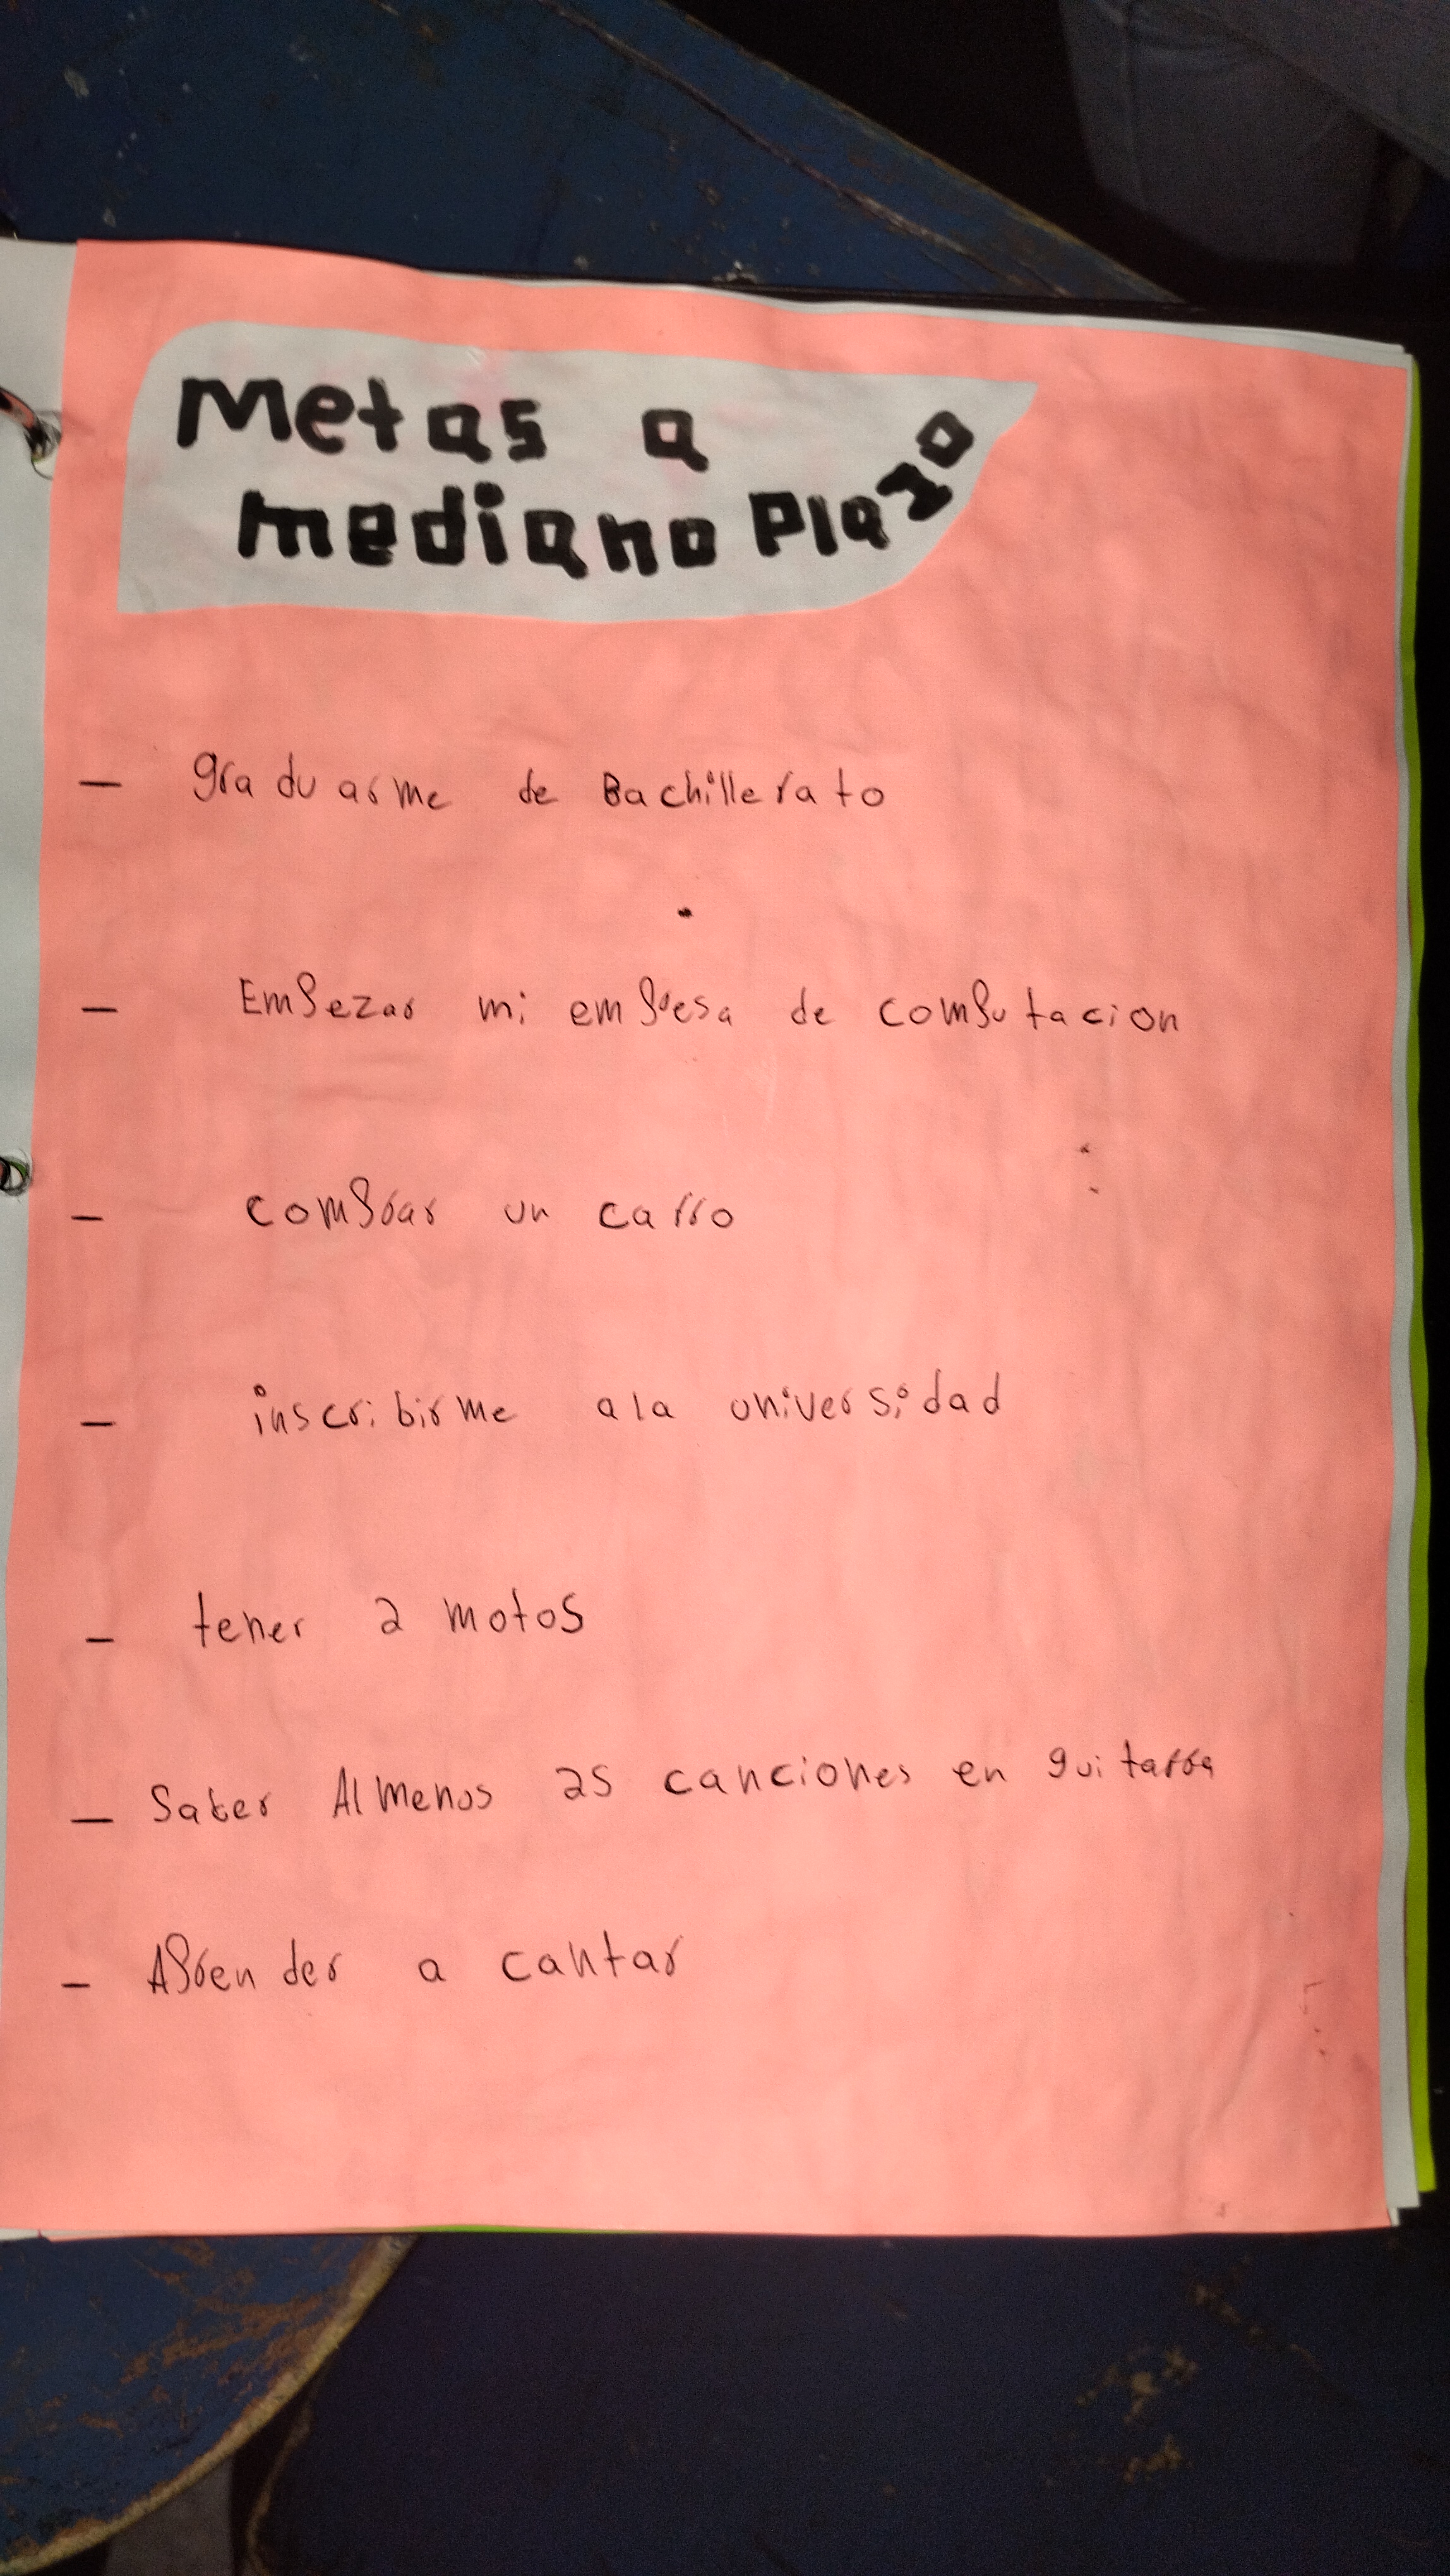 Metas a
mediano Plazo
- graduarme de Bachillerato
- Empezar mi empresa de computacion
- comprar un carro
- inscribirme a la universidad
- tener 2 motos
- Saber Al menos 25 canciones en guitarra
- Aprender a cantar